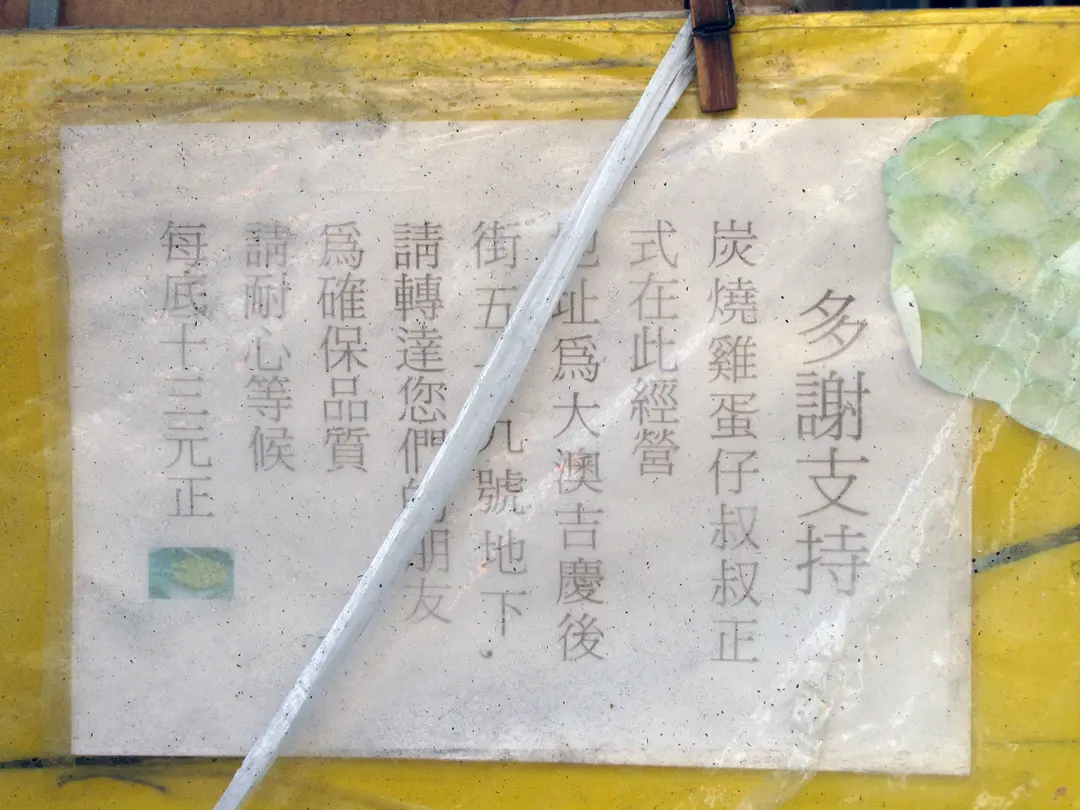 多謝支持
炭燒雞蛋仔叔叔正
式在此經營
地址爲大澳吉慶後
街五九號地下.
請轉達您們的朋友
爲確保品質
請耐心等候
每底十三元正